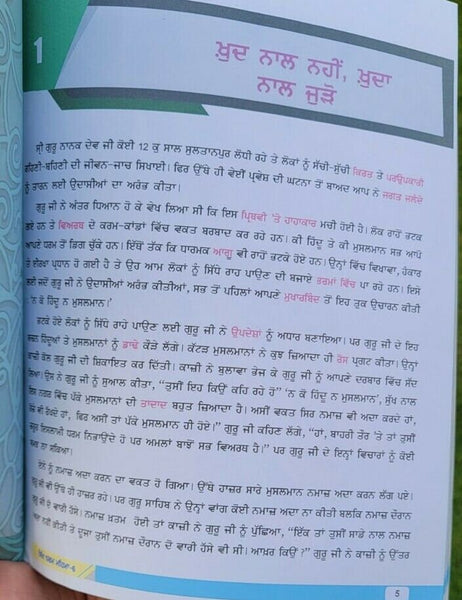 1
ਖ਼ੁਦ ਨਾਲ ਨਹੀਂ, ਖ਼ੁਦਾ
ਨਾਲ ਜੁੜੋ
ਸ੍ਰੀ ਗੁਰੂ ਨਾਨਕ ਦੇਵ ਜੀ ਕੋਈ 12 ਕੁ ਸਾਲ ਸੁਲਤਾਨਪੁਰ ਲੋਧੀ ਰਹੇ ਤੇ ਲੋਕਾਂ ਨੂੰ ਸੱਚੀ-ਸੁੱਚੀ ਕਿਰਤ ਤੇ ਪਰਉਪਕਾਰੀ
ਰਹਿਣੀ-ਬਹਿਣੀ ਦੀ ਜੀਵਨ-ਜਾਚ ਸਿਖਾਈ। ਫਿਰ ਉੱਥੇ ਹੀ ਵੇਈਂ ਪ੍ਰਵੇਸ਼ ਦੀ ਘਟਨਾ ਤੋਂ ਬਾਅਦ ਆਪ ਨੇ ਜਗਤ ਜਲੰਦੇ
ਨੂੰ ਤਾਰਨ ਲਈ ਉਦਾਸੀਆਂ ਦਾ ਅਰੰਭ ਕੀਤਾ।
ਗੁਰੂ ਜੀ ਨੇ ਅੰਤਰ ਧਿਆਨ ਹੋ ਕੇ ਵੇਖ ਲਿਆ ਸੀ ਕਿ ਇਸ ਪ੍ਰਿਥਵੀ 'ਤੇ ਹਾਹਾਕਾਰ ਮਚੀ ਹੋਈ ਹੈ। ਲੋਕ ਰਾਹੋਂ ਭਟਕ
ਗਏ ਹਨ ਤੇ ਵਿਅਰਥ ਦੇ ਕਰਮ-ਕਾਂਡਾਂ ਵਿੱਚ ਵਕਤ ਬਰਬਾਦ ਕਰ ਰਹੇ ਹਨ। ਕੀ ਹਿੰਦੂ ਤੇ ਕੀ ਮੁਸਲਮਾਨ ਸਭ ਆਪੋ
ਆਪਣੇ ਧਰਮ ਤੋਂ ਡਿਗ ਚੁੱਕੇ ਹਨ। ਇੱਥੋਂ ਤੱਕ ਕਿ ਧਾਰਮਕ ਆਗੂ ਵੀ ਰਾਹੋਂ ਭਟਕੇ ਹੋਏ ਹਨ। ਉਨ੍ਹਾਂ ਵਿੱਚ ਵਿਖਾਵਾ, ਹੰਕਾਰ
ਤੇ ਈਰਖਾ ਪ੍ਰਧਾਨ ਹੋ ਗਈ ਹੈ ਤੇ ਉਹ ਆਮ ਲੋਕਾਂ ਨੂੰ ਸਿੱਧੇ ਰਾਹ ਪਾਉਣ ਦੀ ਬਜਾਏ ਭਰਮਾਂ ਵਿੱਚ ਪਾ ਰਹੇ ਹਨ। ਇਸੇ
ਲਈ ਜਦੋਂ ਗੁਰੂ ਜੀ ਨੇ ਉਦਾਸੀਆਂ ਅਰੰਭ ਕੀਤੀਆਂ, ਸਭ ਤੋਂ ਪਹਿਲਾਂ ਆਪਣੇ ਮੁਖਾਰਬਿੰਦ ਤੋਂ ਇਹ ਤੁਕ ਉਚਾਰਨ ਕੀਤੀ
'ਨ ਕੋ ਹਿੰਦੂ ਨ ਮੁਸਲਮਾਨ।'
ਭਟਕੇ ਹੋਏ ਲੋਕਾਂ ਨੂੰ ਸਿੱਧੇ ਰਾਹੇ ਪਾਉਣ ਲਈ ਗੁਰੂ ਜੀ ਨੇ ਉਪਦੇਸ਼ਾਂ ਨੂੰ ਅਧਾਰ ਬਣਾਇਆ। ਪਰ ਗੁਰੂ ਜੀ ਦੇ ਇਹ
ਬਚਨ ਹਿੰਦੂਆਂ ਤੇ ਮੁਸਲਮਾਨਾਂ ਨੂੰ ਡਾਢੇ ਕੌੜੇ ਲੱਗੇ। ਕੱਟੜ ਮੁਸਲਮਾਨਾਂ ਨੇ ਕੁਝ ਜ਼ਿਆਦਾ ਹੀ ਰੋਸ ਪ੍ਰਗਟ ਕੀਤਾ। ਉਨ੍ਹਾਂ
ਕਾਜ਼ੀ ਕੋਲ ਗੁਰੂ ਜੀ ਦੀ ਸ਼ਿਕਾਇਤ ਕਰ ਦਿੱਤੀ। ਕਾਜ਼ੀ ਨੇ ਬੁਲਾਵਾ ਭੇਜ ਕੇ ਗੁਰੂ ਜੀ ਨੂੰ ਆਪਣੇ ਦਰਬਾਰ ਵਿੱਚ ਸੱਦ
ਲਿਆ। ਉਸ ਨੇ ਗੁਰੂ ਜੀ ਨੂੰ ਸੁਆਲ ਕੀਤਾ, "ਤੁਸੀਂ ਇਹ ਕਿਉਂ ਕਹਿ ਰਹੇ ਹੋ" 'ਨ ਕੋ ਹਿੰਦੂ ਨ ਮੁਸਲਮਾਨ', ਸੁੱਖ ਨਾਲ
ਇਸ ਨਗਰ ਵਿੱਚ ਪੱਕੇ ਮੁਸਲਮਾਨਾਂ ਦੀ ਤਾਦਾਦ ਬਹੁਤ ਜ਼ਿਆਦਾ ਹੈ। ਅਸੀਂ ਵਕਤ ਸਿਰ ਨਮਾਜ਼ ਵੀ ਅਦਾ ਕਰਦੇ ਹਾਂ,
ਰੋਜ਼ੇ ਵੀ ਰੱਖਦੇ ਹਾਂ, ਫਿਰ ਅਸੀਂ ਤਾਂ ਪੱਕੇ ਮੁਸਲਮਾਨ ਹੀ ਹੋਏ।" ਗੁਰੂ ਜੀ ਕਹਿਣ ਲੱਗੇ, "ਹਾਂ, ਬਾਹਰੀ ਤੌਰ 'ਤੇ ਤਾਂ ਤੁਸੀਂ
ਜ਼ਰੂਰ ਇਸਲਾਮੀ ਧਰਮ ਨਿਭਾਉਂਦੇ ਹੋ ਪਰ ਅਮਲਾਂ ਬਾਝੋਂ ਸਭ ਵਿਅਰਥ ਹੈ।" ਪਰ ਗੁਰੂ ਜੀ ਦੇ ਇਨ੍ਹਾਂ ਵਿਚਾਰਾਂ ਨੂੰ ਕੋਈ
ਸਮਝ ਨਾ ਸਕਿਆ।
ਏਨੇ ਨੂੰ ਨਮਾਜ਼ ਅਦਾ ਕਰਨ ਦਾ ਵਕਤ ਹੋ ਗਿਆ। ਉੱਥੇ ਹਾਜ਼ਰ ਸਾਰੇ ਮੁਸਲਮਾਨ ਨਮਾਜ਼ ਅਦਾ ਕਰਨ ਲੱਗ ਪਏ।
ਗੁਰੂ ਜੀ ਵੀ ਉੱਥੇ ਹੀ ਹਾਜ਼ਰ ਰਹੇ। ਪਰ ਗੁਰੂ ਸਾਹਿਬ ਨੇ ਉਨ੍ਹਾਂ ਵਾਂਗ ਕੋਈ ਨਮਾਜ਼ ਅਦਾ ਨਾ ਕੀਤੀ ਬਲਕਿ ਨਮਾਜ਼ ਦੌਰਾਨ
ਗੁਰੂ ਜੀ ਦੋ ਵਾਰੀ ਹੱਸੇ। ਨਮਾਜ਼ ਖ਼ਤਮ ਹੋਈ ਤਾਂ ਕਾਜ਼ੀ ਨੇ ਗੁਰੂ ਜੀ ਨੂੰ ਪੁੱਛਿਆ, "ਇੱਕ ਤਾਂ ਤੁਸੀਂ ਸਾਡੇ ਨਾਲ ਨਮਾਜ਼
ਅਦਾ ਨਹੀਂ ਕੀਤੀ ਤੇ ਦੂਜਾ ਤੁਸੀਂ ਨਮਾਜ਼ ਦੌਰਾਨ ਦੋ ਵਾਰੀ ਹੱਸੇ ਵੀ ਸੀ। ਆਖ਼ਰ ਕਿਉਂ ?" ਗੁਰੂ ਜੀ ਨੇ ਕਾਜ਼ੀ ਨੂੰ ਉੱਤਰ
5